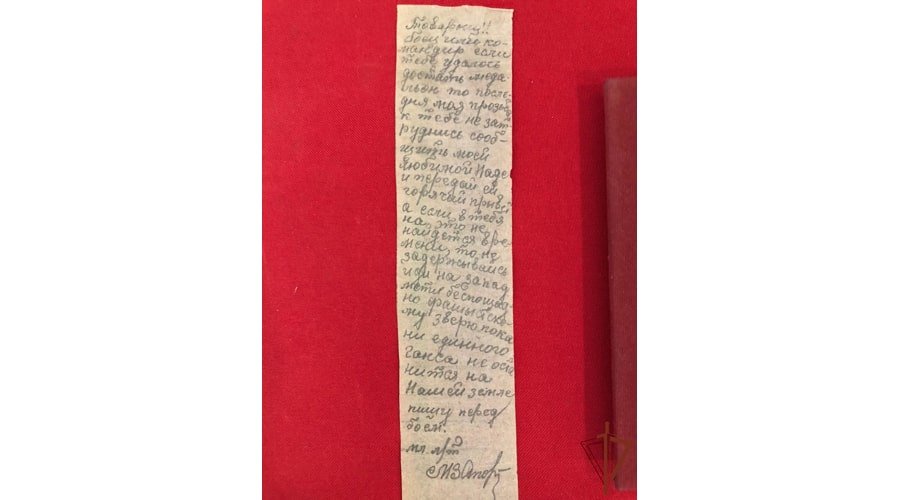 Товарищ!!
боец или ко-
мандир если
тебе удалось
достать меда-
льон то после-
дняя моя прозьба
к тебе не зат-
руднись сооб-
щить моей
любимой Наде
и передай ей
горячий привет
а если в тебя
на это не
найдется вре-
мени, то не
задерживаись
иди на запад
мсти беспощад-
но фашыйско-
му зверю пока
ни единного
ганса не оста
нится на
Нашей земле
пишу перед
боем.
мл. л/т